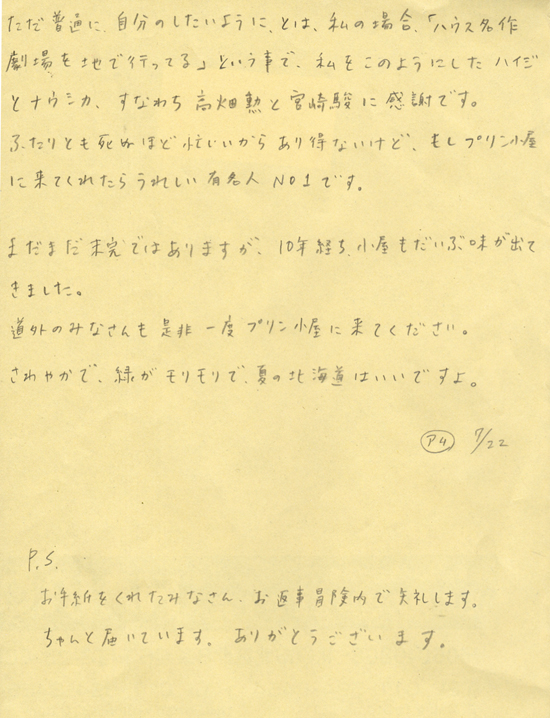 ただ普通に、自分のしたいように、とは、私の場合、「ハウス名作
劇場を地で行ってる」という事で、私をこのようにしたハイジ
とナウシカ、すなわち高畑勲と宮崎駿に感謝です。
ふたりとも死ぬほど忙しいからあり得ないけど、もしプリン小屋
に来てくれたらうれしい有名人NO1です。
まだまだ未完ではありますが、10年経ち、小屋もだいぶ味が出て
きました。
道外のみなさんも是非一度プリン小屋に来てください。
さわやかで、緑がモリモリで、夏の北海道はいいですよ。
P4 7/22
P.S.
お手紙をくれたみなさん、お返事冒険内で失礼します。
ちゃんと届いています。ありがとうございます。